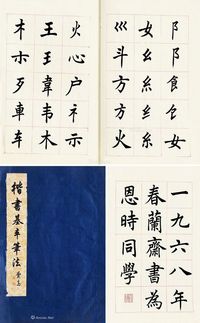 阝阝飠饣女
女幺糸纟糸
巛斗方方火
火心户礻示
王王韋韦木
木朩歹車车
楷書基本筆法
一九六八年
春蘭齋書為
恩時同學